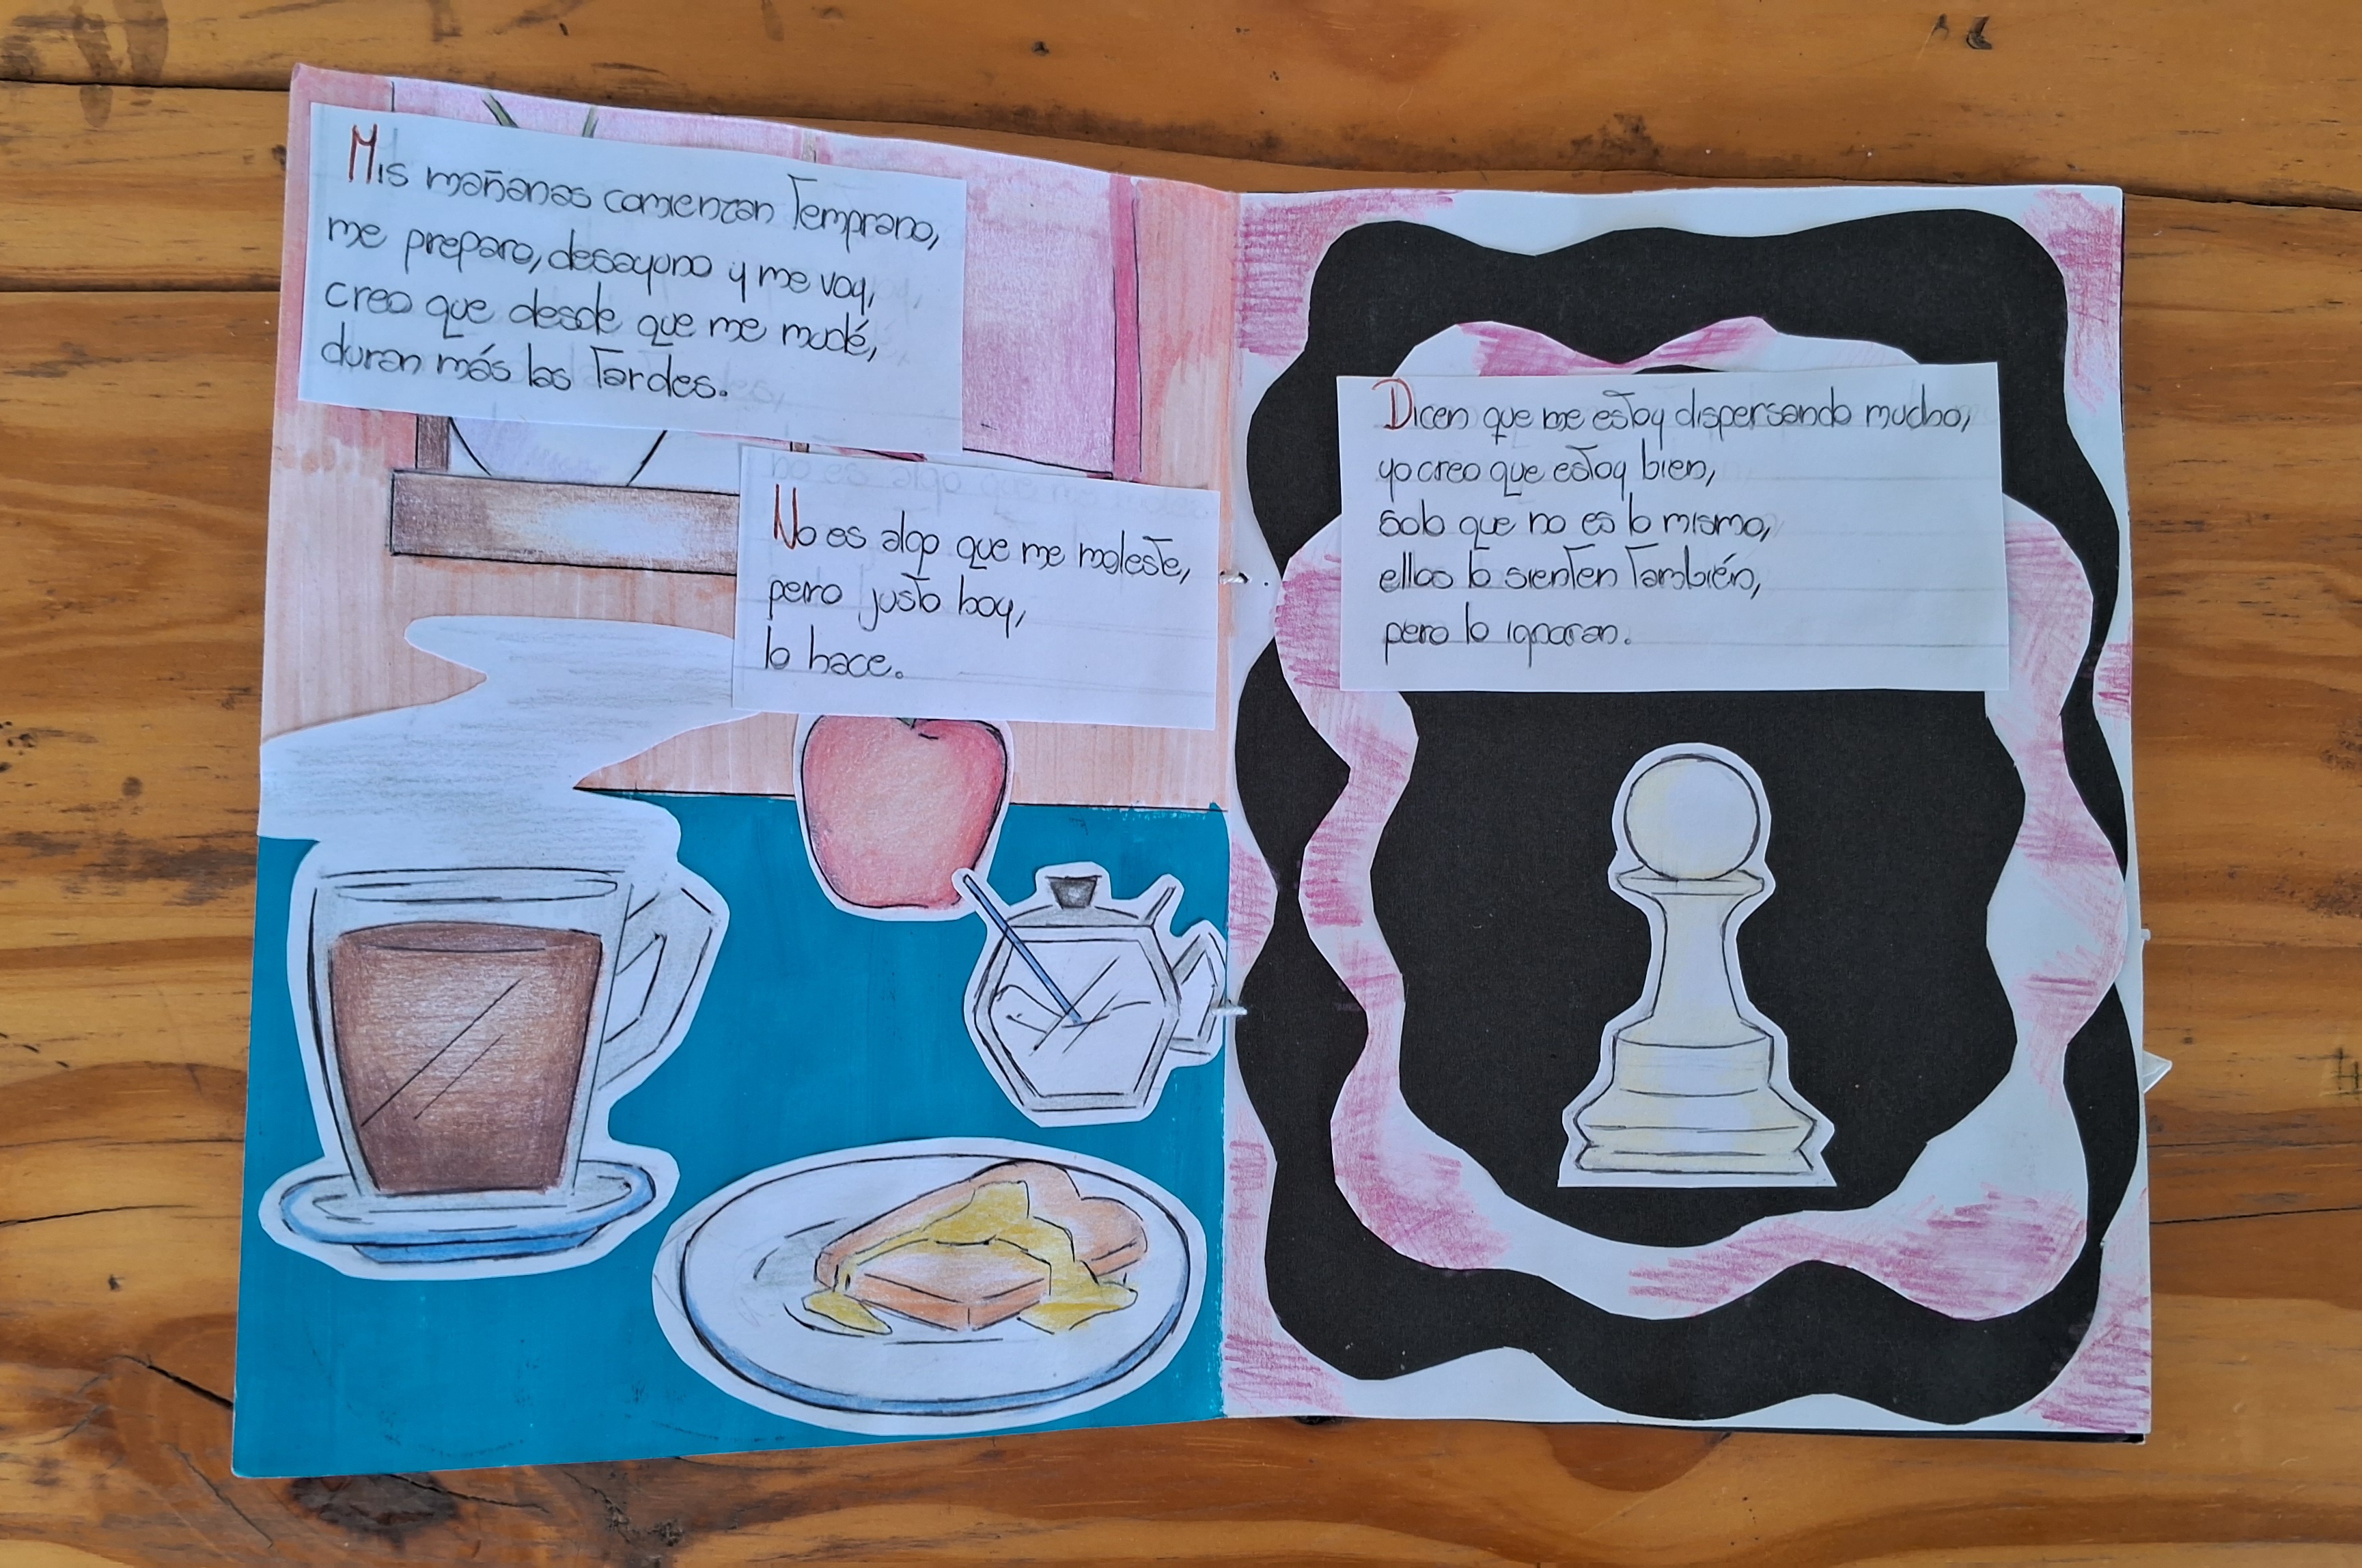 Mis mañanas comienzan temprano,
me preparo, desayuno y me voy,
creo que desde que me mudé,
duran más las tardes.
No es algo que me moleste,
pero justo hoy,
lo hace.
Dicen que me estoy dispersando mucho,
yo creo que estoy bien,
solo que no es lo mismo,
ellos lo sienten también,
pero lo ignoran.